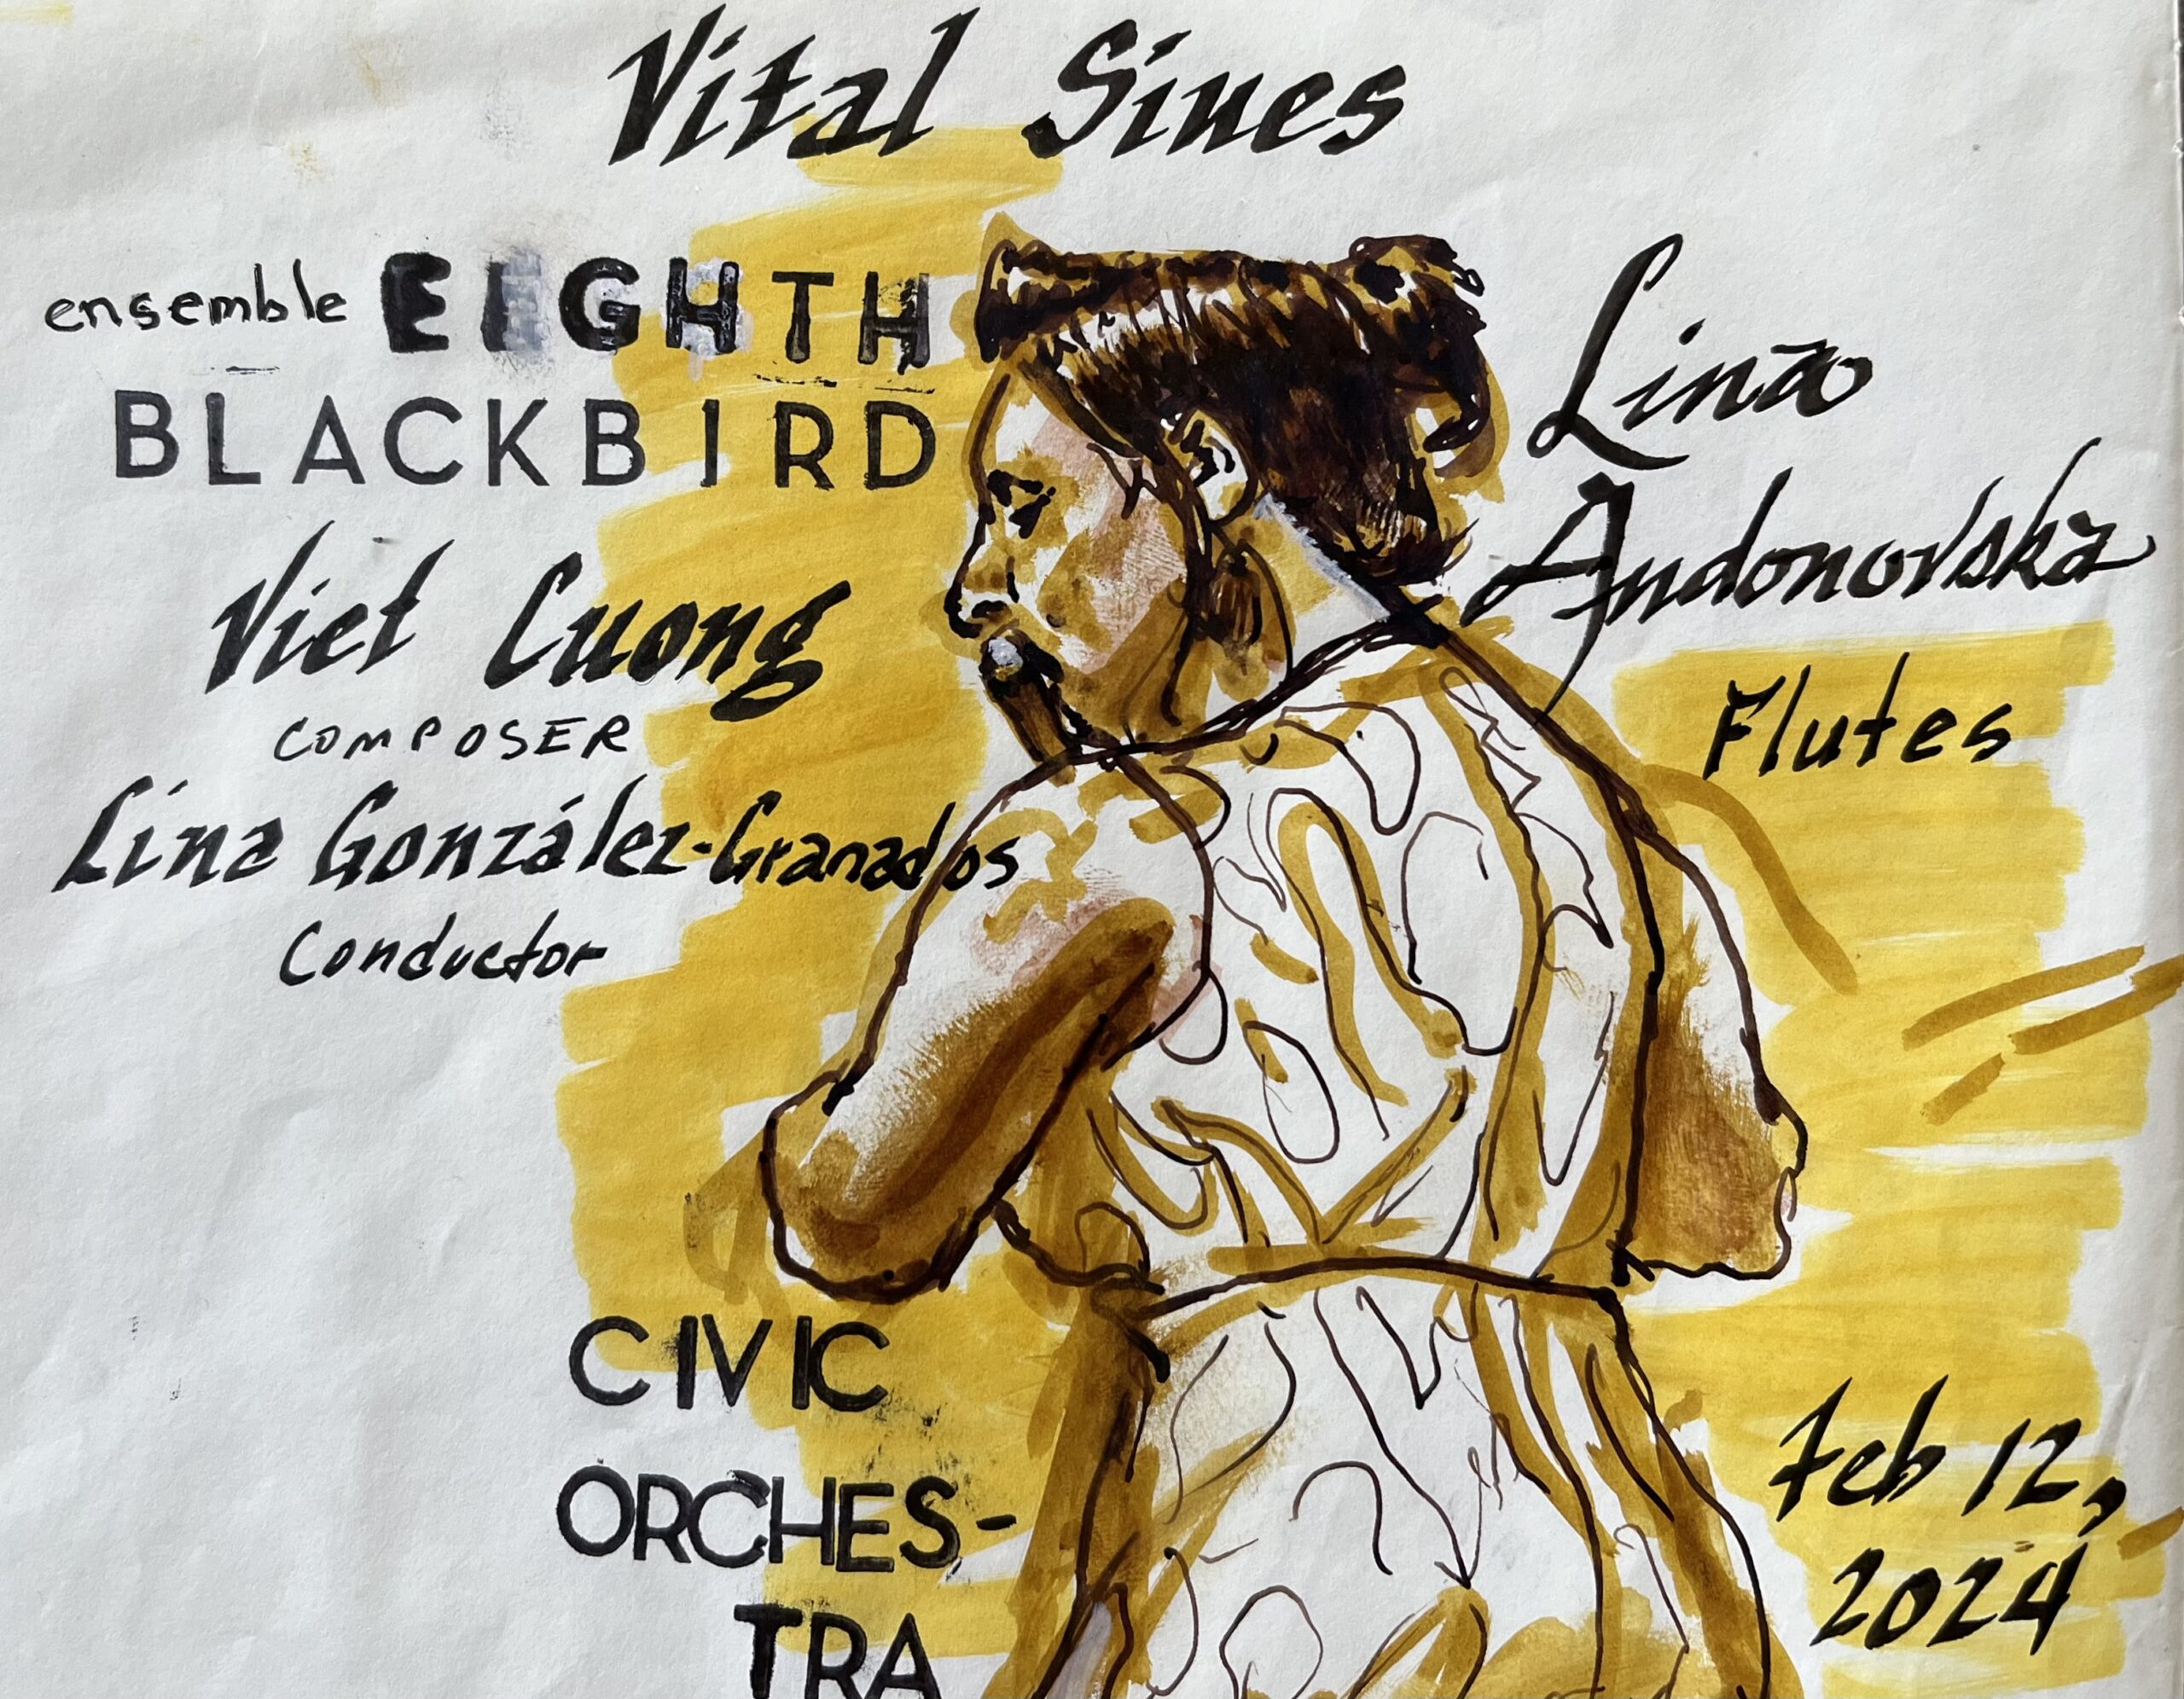 Vital Sines
ensemble EIGHTH
BLACKBIRD
Viet Cuong
COMPOSER
Lina González-Granados
Conductor
Lina
Andonovska
Flutes
CIVIC
ORCHES-
TRA
Feb 12,
2024